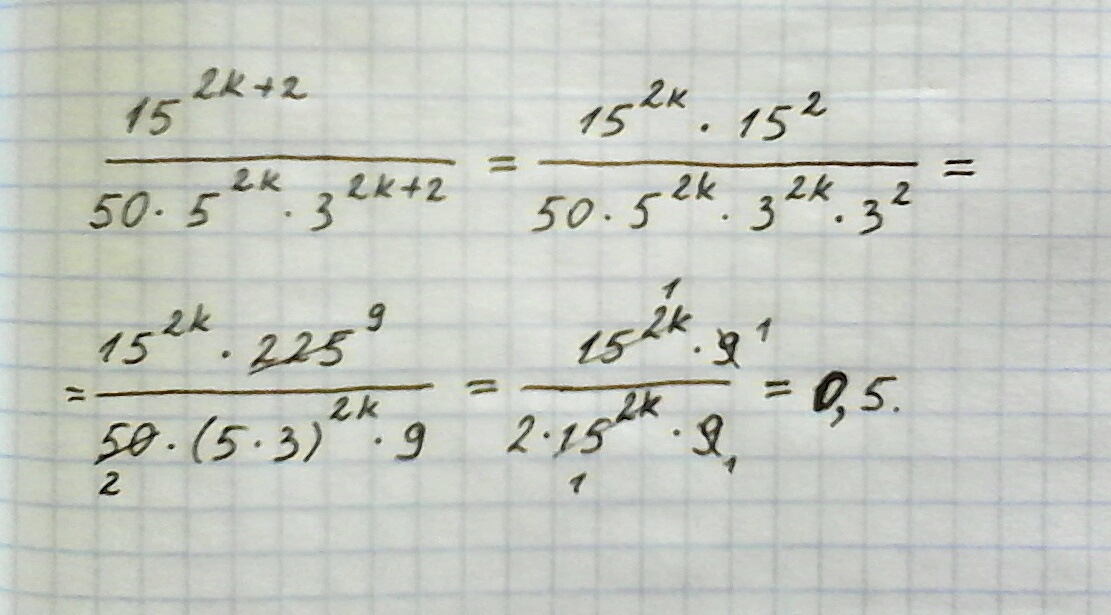 15^{2k+2} / (50 · 5^{2k} · 3^{2k+2}) = (15^{2k} · 15^2) / (50 · 5^{2k} · 3^{2k} · 3^2) =
= (15^{2k} · 225^9) / (50_2 · (5 · 3)^{2k} · 9) = (15^{2k} ^1 · 9 ^1) / (2 · 15^{2k} _1 · 9 _1) = 0,5.